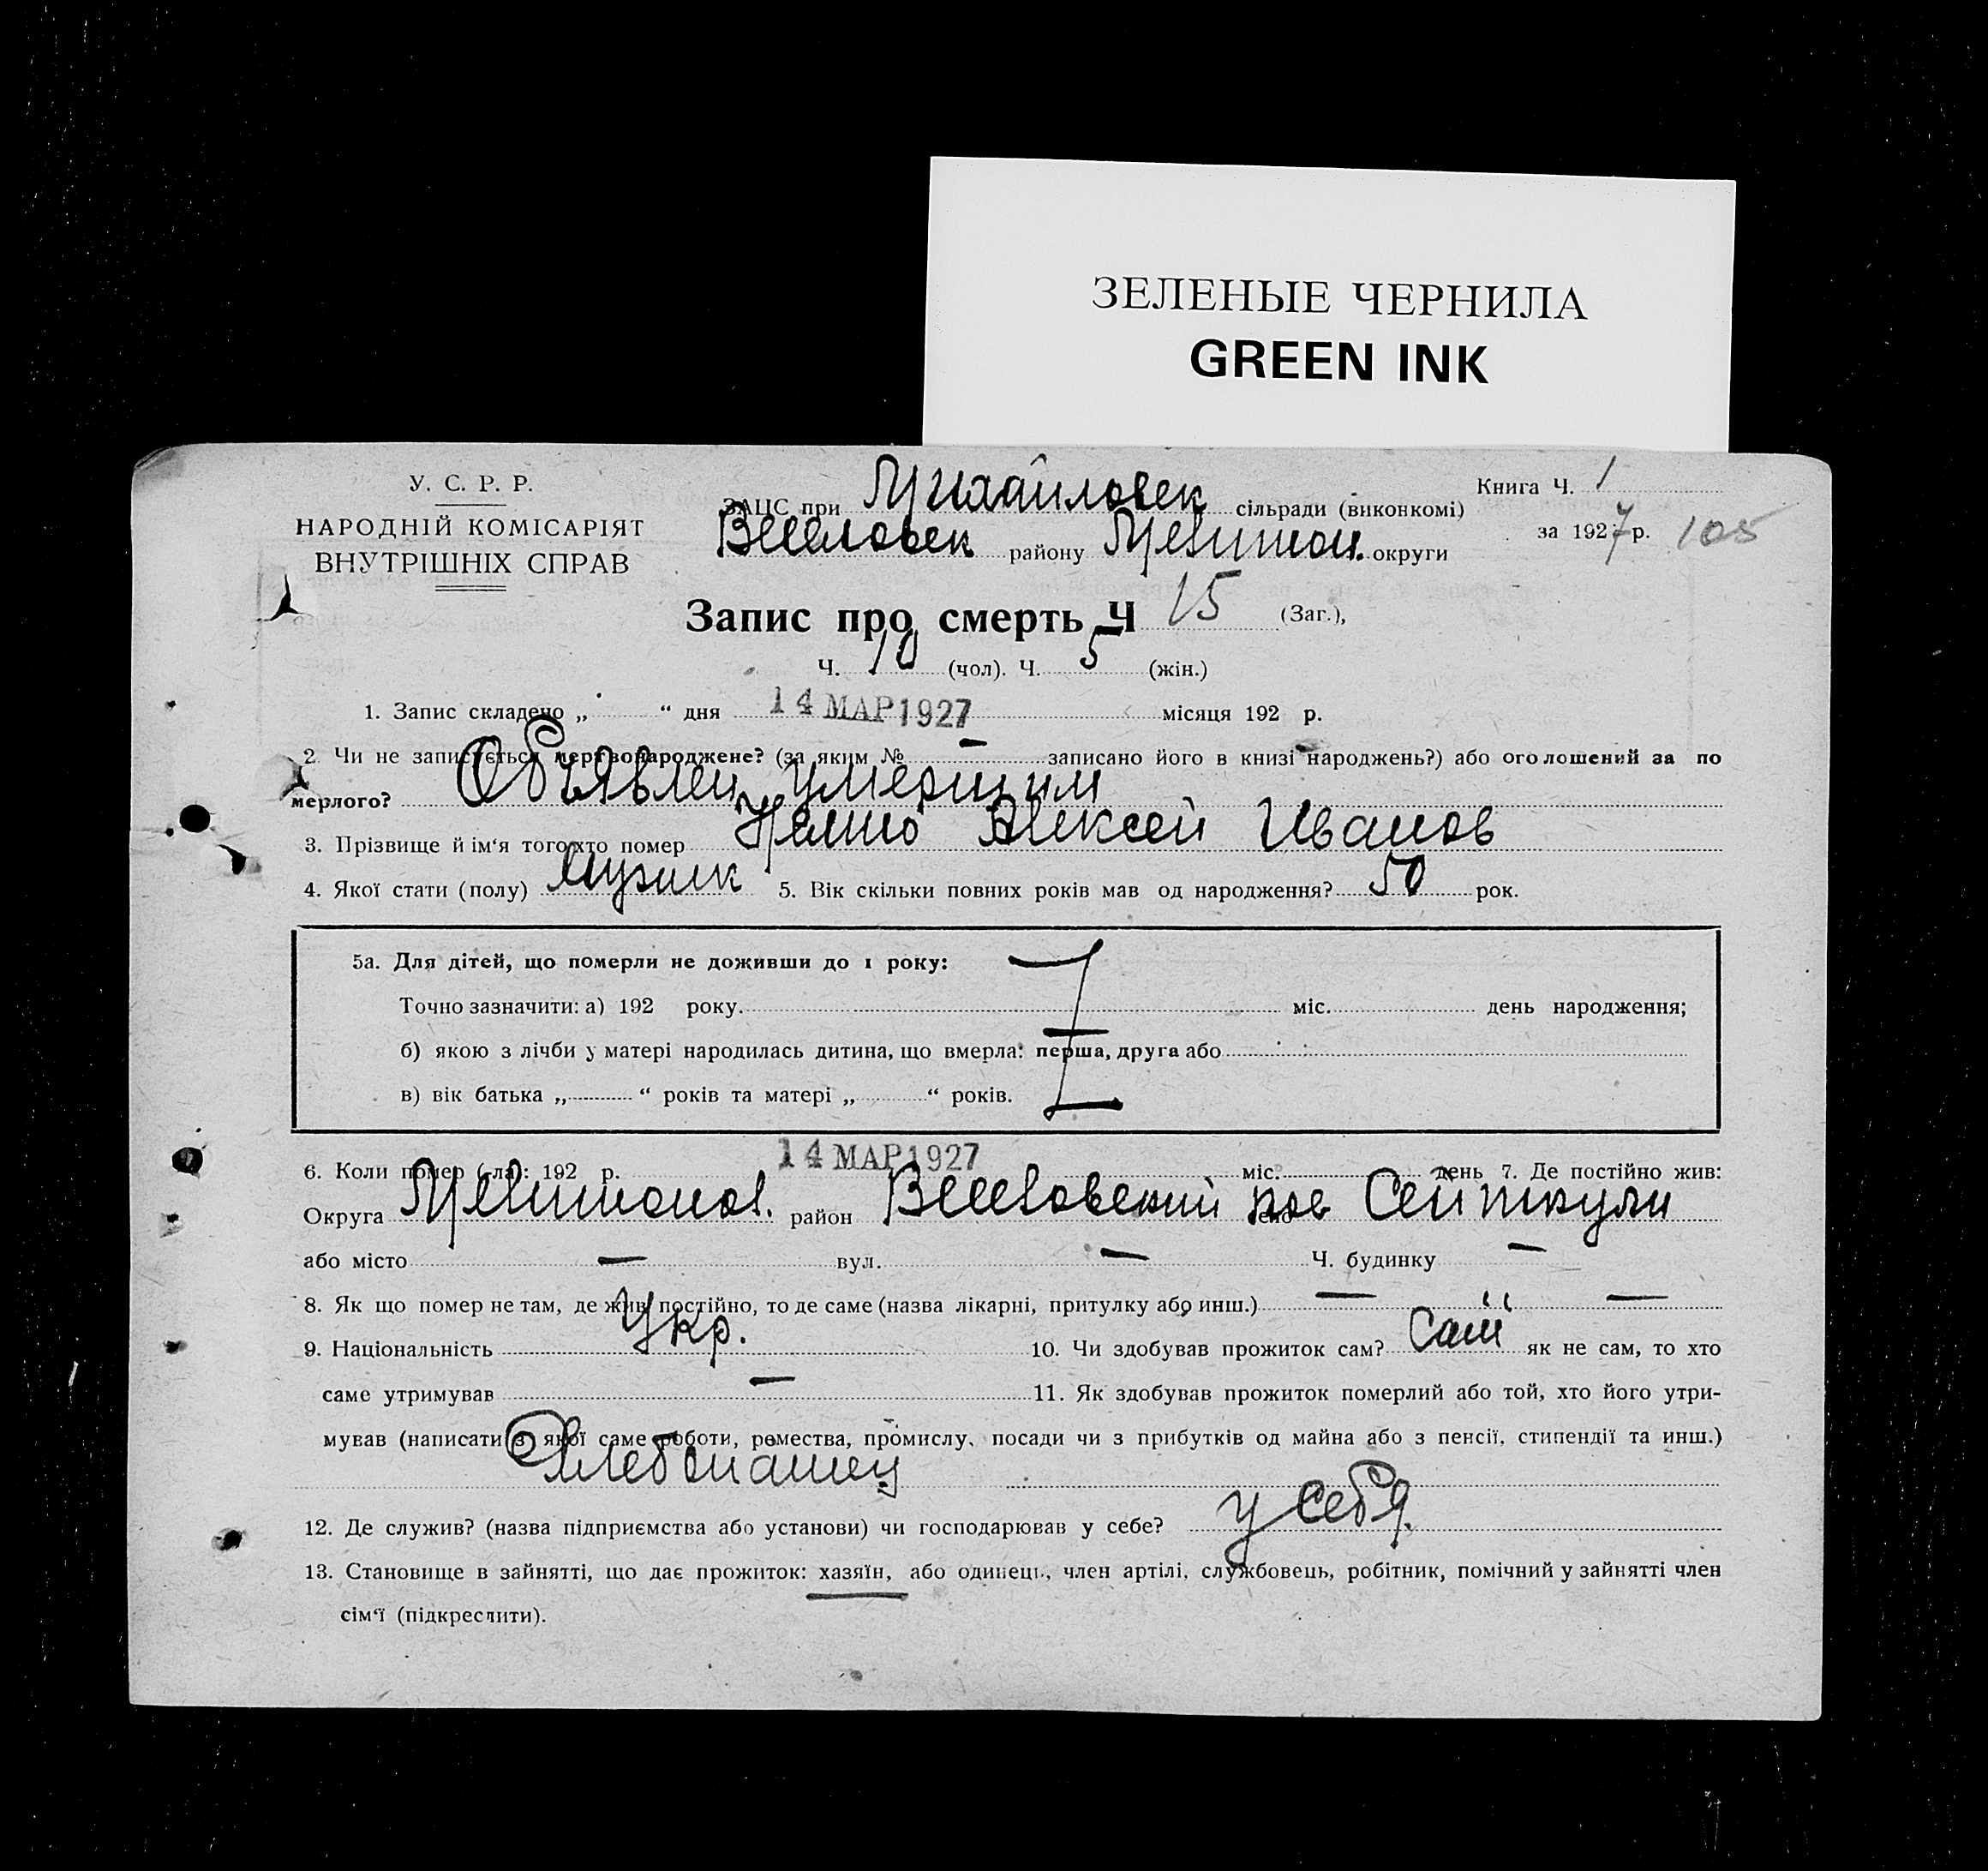 ЗЕЛЕНЫЕ ЧЕРНИЛА
GREEN INK
У. С. Р. Р.
НАРОДНІЙ КОМІСАРІЯТ
ВНУТРІШНІХ СПРАВ
ЗАЦС при Михайловск сільради (виконкомі)
Веселовск району Мелитоп. округи
Книга Ч. 1
за 1927 р. 105
Запис про смерть Ч 15 (Заг.),
Ч. 10 (чол). Ч. 5 (жін.)
1. Запис складено „ “ дня 14 МАР 1927 місяця 192 р.
2. Чи не записується мертвонароджене? (за яким № — записано його в книзі народжень?) або оголошений за по
мерлого? Объявлен умершим
3. Прізвище й ім‘я того хто помер Алексей Иванов
4. Якої стати (полу) мужик 5. Вік скільки повних років мав од народження? 50 рок.
5а. Для дітей, що померли не доживши до 1 року:
Точно зазначити: а) 192 року. міс. день народження;
б) якою з лічби у матері народилась дитина, що вмерла: перша, друга або
в) вік батька „ “ років та матері „ “ років.
6. Коли помер (-ла): 192 р. 14 МАР 1927 міс. день 7. Де постійно жив:
Округа Мелитопол. район Веселовский пос Сейткули
або місто — вул. — Ч. будинку —
8. Як що помер не там, де жив постійно, то де саме (назва лікарні, притулку або инш.) — —
9. Національність Укр. 10. Чи здобував прожиток сам? Сам як не сам, то хто
саме утримував — 11. Як здобував прожиток померлий або той, хто його утри-
мував (написати з якої саме роботи, ремества, промислу, посади чи з прибутків од майна або з пенсії, стипендії та инш.)
Хлебопашец
12. Де служив? (назва підприємства або установи) чи господарював у себе? у себя.
13. Становище в зайнятті, що дає прожиток: хазяїн, або одинець, член артілі, службовець, робітник, помічний у зайнятті член
сім‘ї (підкреслити).